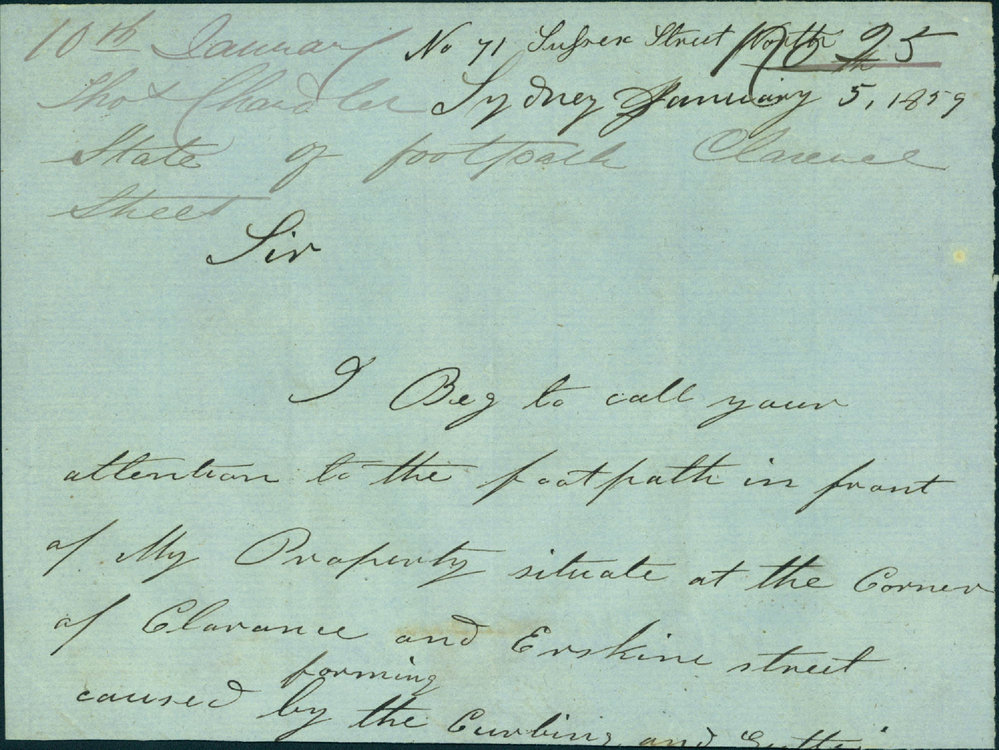 10th January
Thos Chandler
State of footpath Clarence
Street
No 71 Sussex Street North
No 25
Sydney January 5th, 1859
Sir
I Beg to call your
attention to the footpath in front
of My Property situate at the Corner
of Clarance and Erskine street
forming
caused by the Curbing and